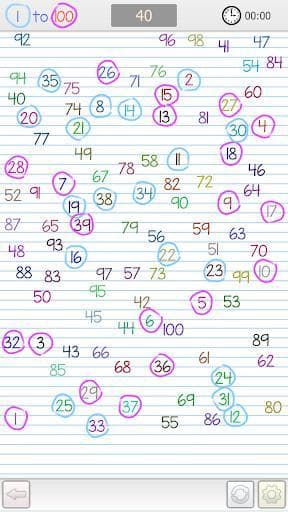 1 to 100 40 00:00
92 96 98 41 47
54 84
94 35 26 76 2
75 71
40 74 8 14 15 27 60
20 13 81
21 30 4
77
49 58 11 18
28 67 78 46
7 82 72 64
52 91 38 34 90 9 17
19
87 65 39 79 59 63
93 56
48 16 22 51 70
88 83 97 57 73 23 99 10
50 95 42 5 53
45 44 6 100
32 3 43 66 89
85 68 36 61 62
24
29 31
1 25 37 69 80
33 55 86 12